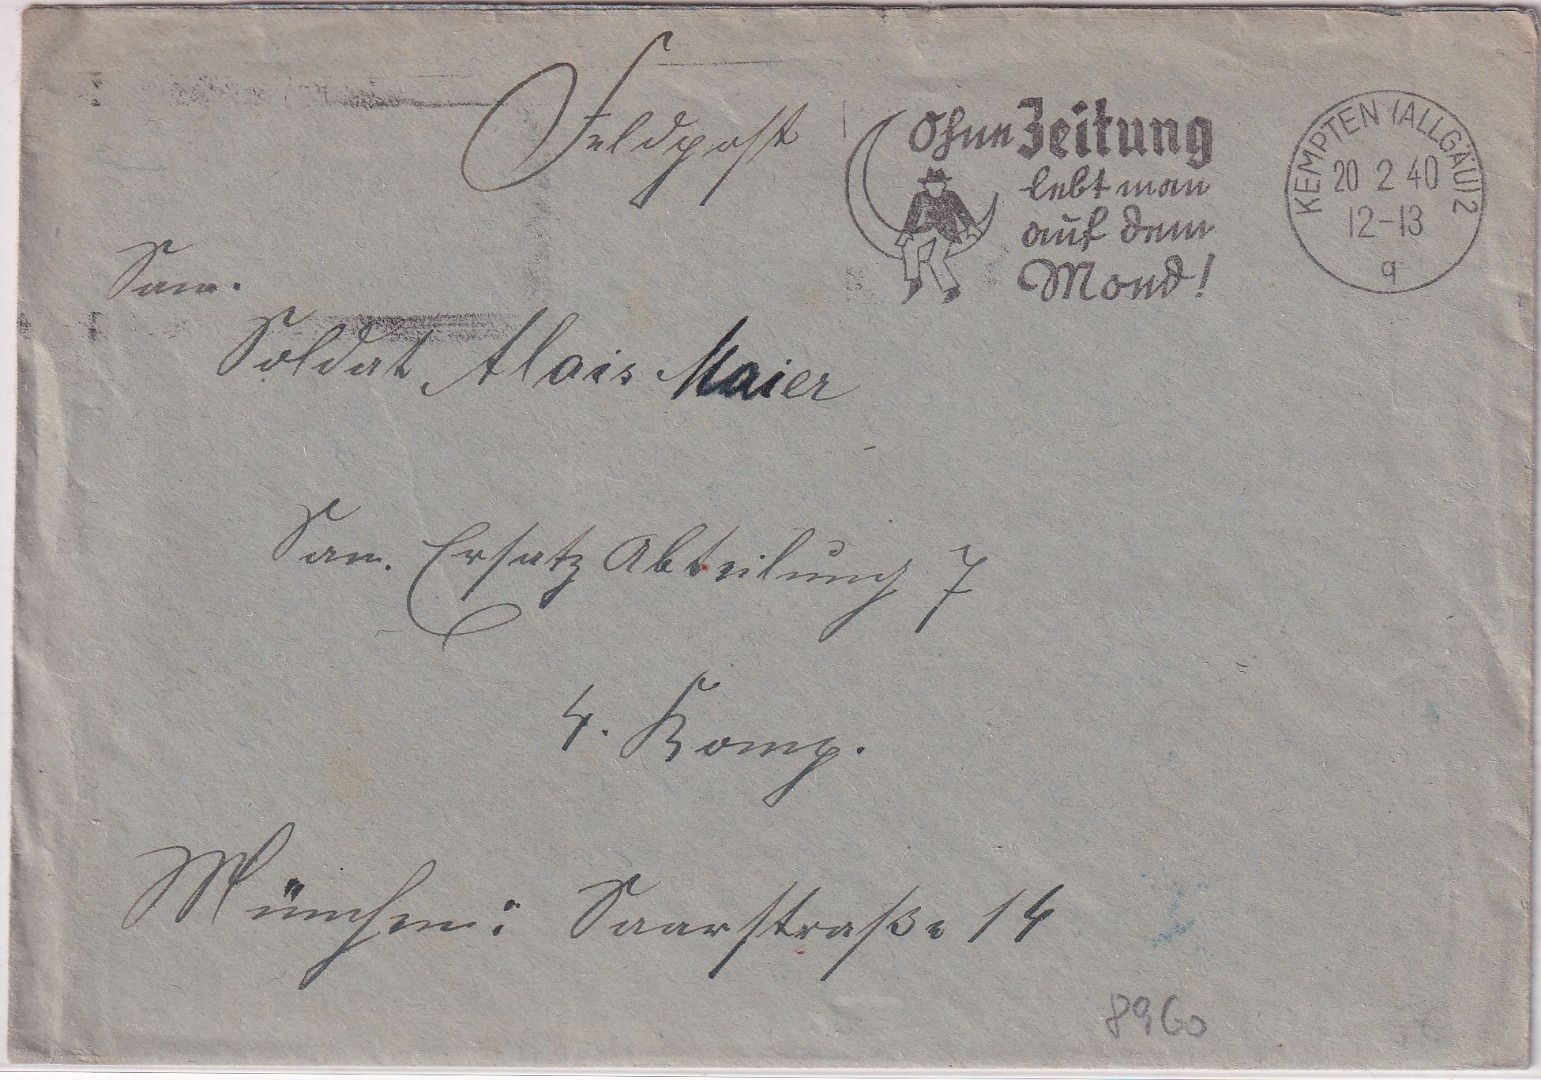 Feldpost
Ohne Zeitung
lebt man
auf dem
Mond!
KEMPTEN (ALLGÄU) 2
20 2 40
12-13
q
San.
Soldat Alois Maier
San. Ersatz Abteilung 7
4. Komp.
München: Saarstraße 14
8960